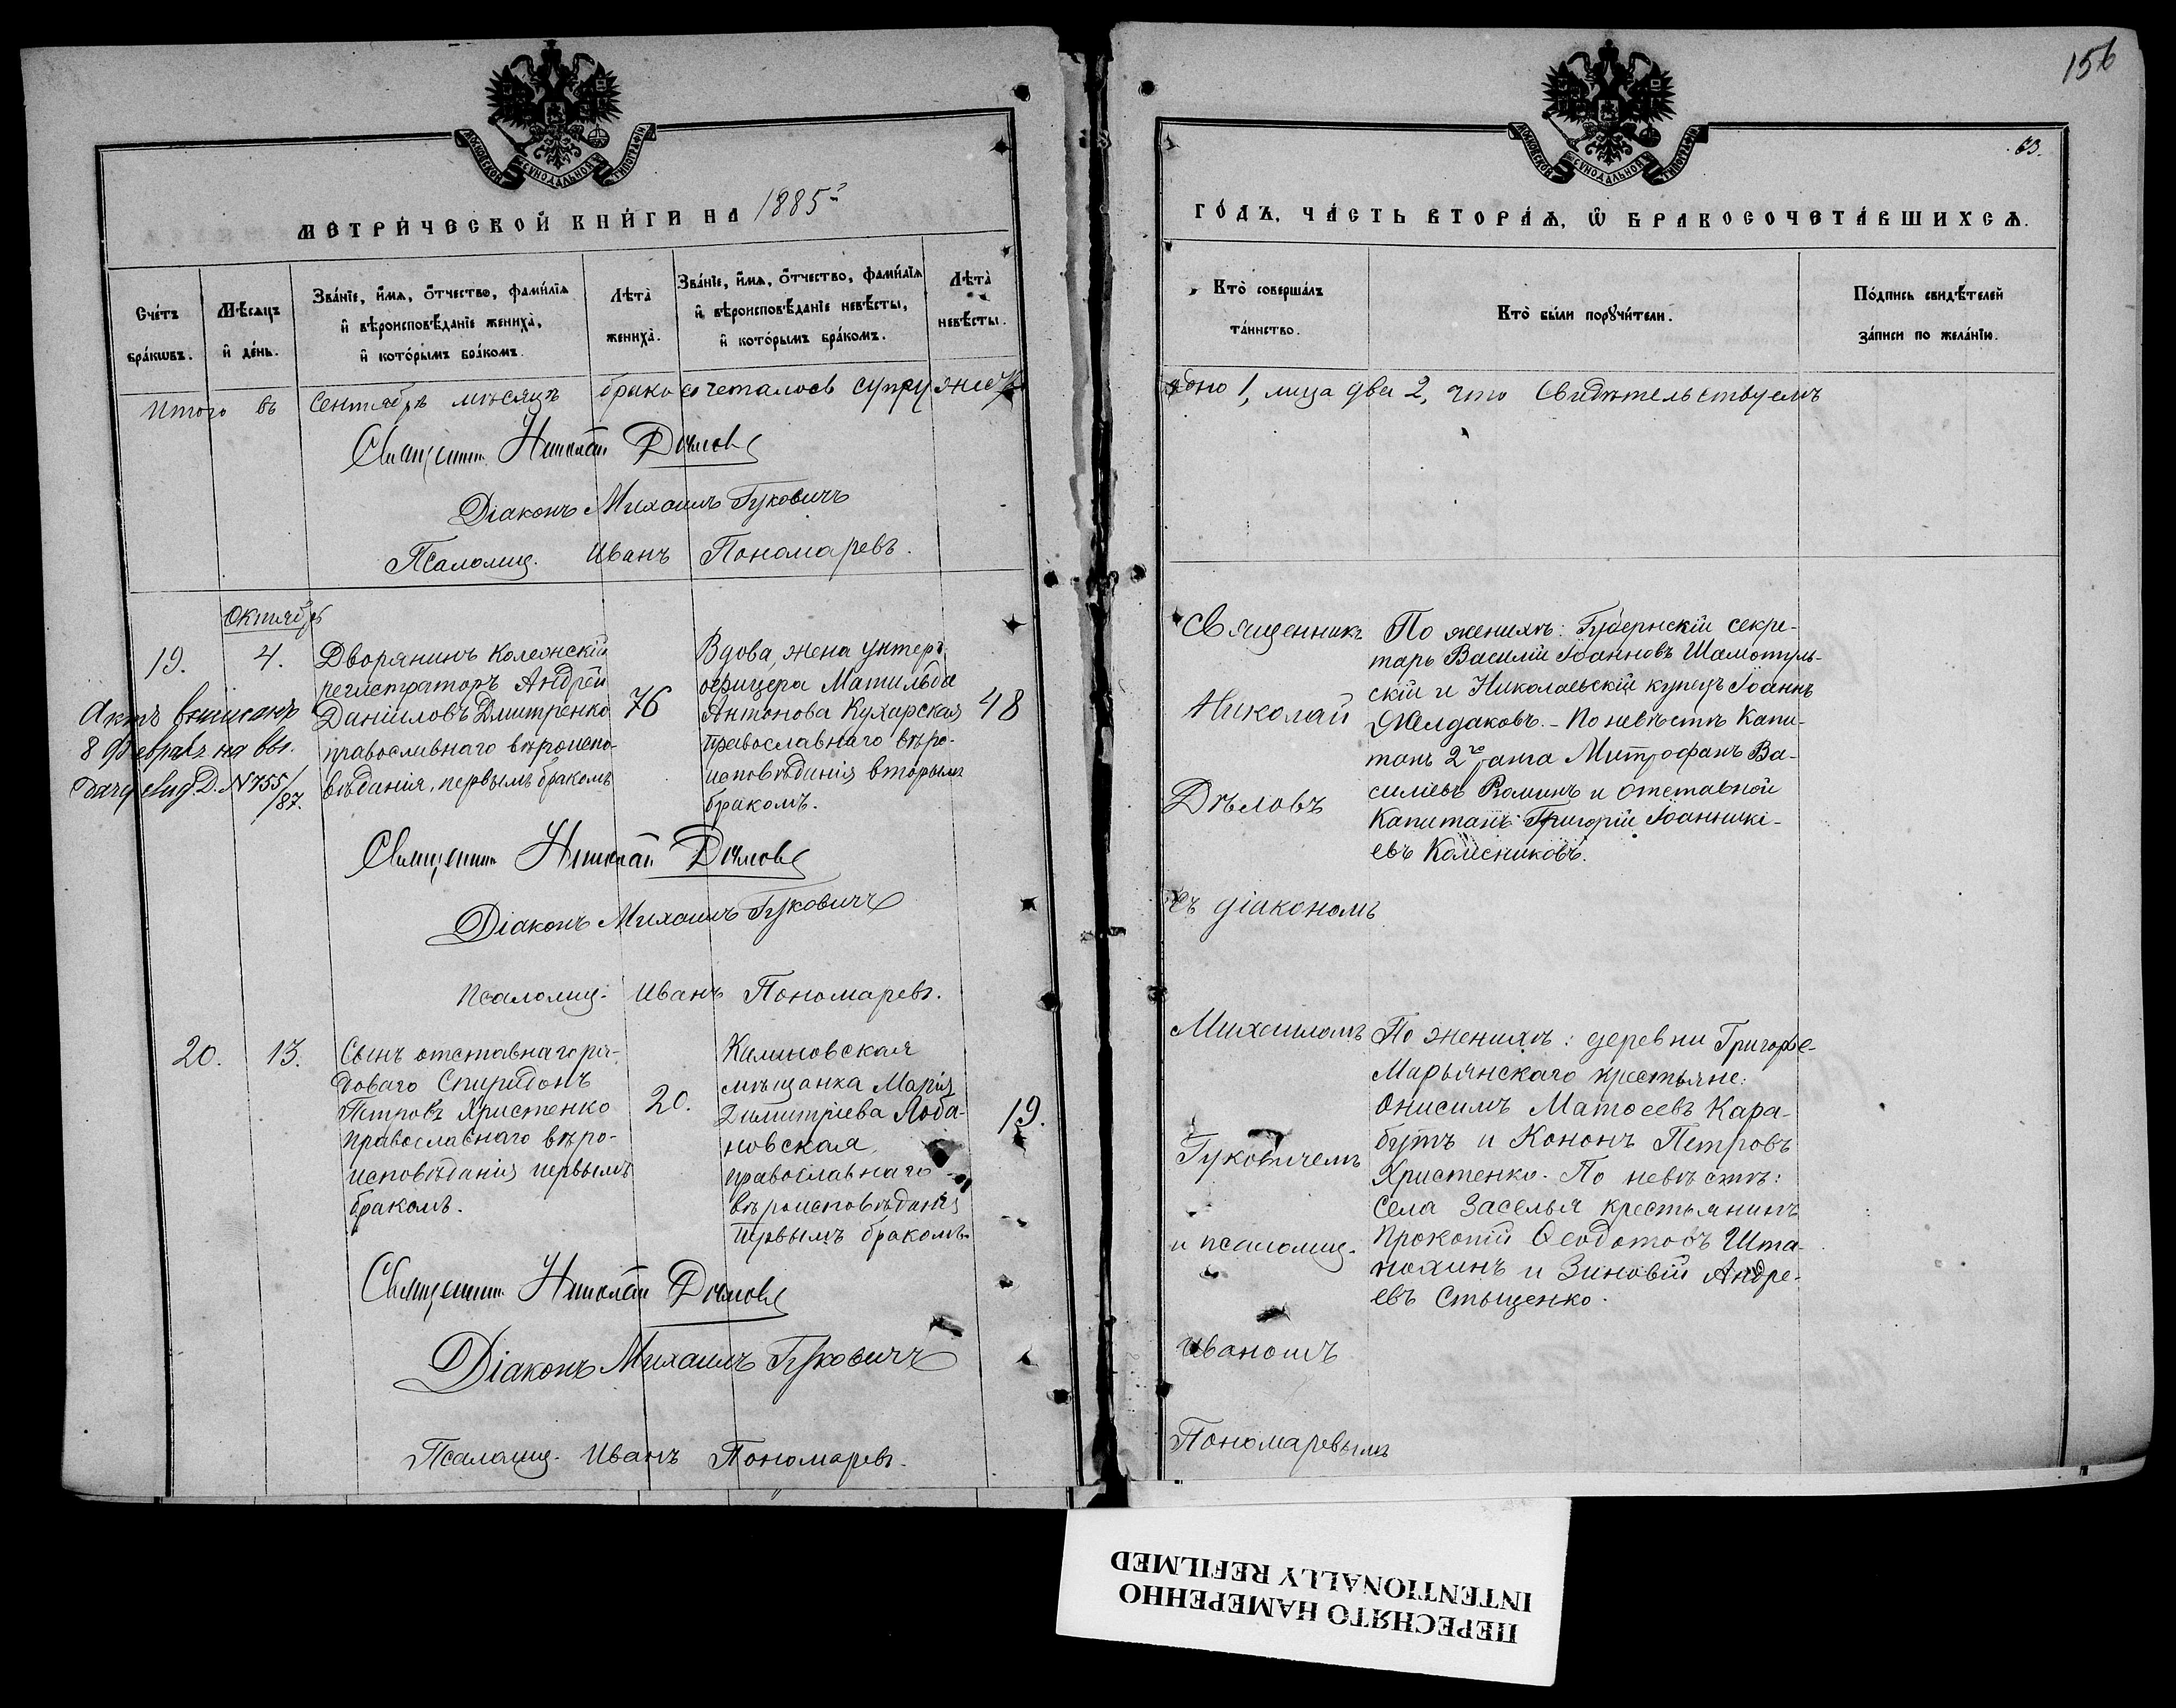 156
63.
МОСКОВСКОЙ СѴНОДАЛЬНОЙ ТИПОГРАФІИ
МЕТРИ́ЧЕСКОЙ КНИ́ГИ НА 1885й
Сче́тъ бра́кωвъ.
Мѣ́сѧцъ и҆ де́нь.
Зва́нїе, и҆́мѧ, ѻ҆́тчество, фами́лїѧ
и҆ вѣроисповѣ́данїе жениха̀,
и҆ кото́рымъ бра́комъ.
Лѣта̀ жениха̀.
Зва́нїе, и҆́мѧ, ѻ҆́тчество, фами́лїѧ
и҆ вѣроисповѣ́данїе невѣ́сты,
и҆ кото́рымъ бра́комъ.
Лѣта̀ невѣ́сты.
Итого въ Сентябрѣ мѣсяцѣ бракосочеталось супружест
Священник Николай Дѣловъ
Діаконъ Михаилъ Гуковичъ
Псаломщ. Иванъ Пономаревъ.
Октябрь
19.
4.
Актъ выписанъ
8 Февраля на вы-
дачу свид. Д. №755/87.
Дворянинъ Колежскій
регистраторъ Андрей
Даніиловъ Дмитренко
православнаго вѣроиспо-
вѣданія, первымъ бракомъ
76
Вдова, жена унтеръ
офицера Матильда
Антонова Кухарская
православнаго вѣро-
исповѣданія вторымъ
бракомъ.
48
Священник Николай Дѣловъ
Діаконъ Михаилъ Гуковичъ
Псаломщ. Иванъ Пономаревъ.
20.
13.
Сынъ отставнаго ря-
доваго Спиридонъ
Петровъ Христенко
православнаго вѣро-
исповѣданія первымъ
бракомъ.
20.
Калиновская
мѣщанка Марія
Димитріева Лоба-
новская,
православнаго
вѣроисповѣданія
первымъ бракомъ.
19.
Священник Николай Дѣловъ
Діаконъ Михаилъ Гуковичъ
Псаломщ. Иванъ Пономаревъ.
МОСКОВСКОЙ СѴНОДАЛЬНОЙ ТИПОГРАФІИ
ГО́ДЪ, ЧА́СТЬ ВТОРА́Ѧ, Ѽ БРАКОСОЧЕТА́ВШИХСѦ.
Кто̀ соверша́лъ
та́инство.
Кто̀ бы́ли порꙋчи́тели.
По́дпись свидѣ́телей
за́писи по жела́нїю.
одно 1, лица два 2, что Свидѣтельствуемъ
Священникъ
Николай
Дѣловъ
съ діакономъ
Михаиломъ
Гуковичемъ
и псаломщ.
Иваномъ
Пономаревымъ
По женихѣ: Губернскій секре-
тарь Василій Іоанновъ Шамотуль-
скій и Николаевскій купецъ Іоаннъ
Желдаковъ. - По невѣстѣ Капи-
танъ 2го ранга Митрофанъ Ва-
сильевъ Роминъ и отставной
Капитанъ Григорій Іоанникі-
евъ Колесниковъ.
По женихѣ: деревни Григорье-
Марьянскаго крестьяне:
Онисимъ Матѳеевъ Кара-
бутъ и Кононъ Петровъ
Христенко. По невѣстѣ:
Села Заселья крестьянинъ
Прокопій Ѳеодотовъ Шта-
нохинъ и Зиновій Андре-
евъ Стыценко.
ПЕРЕСНЯТО НАМЕРЕННО
INTENTIONALLY REFILMED